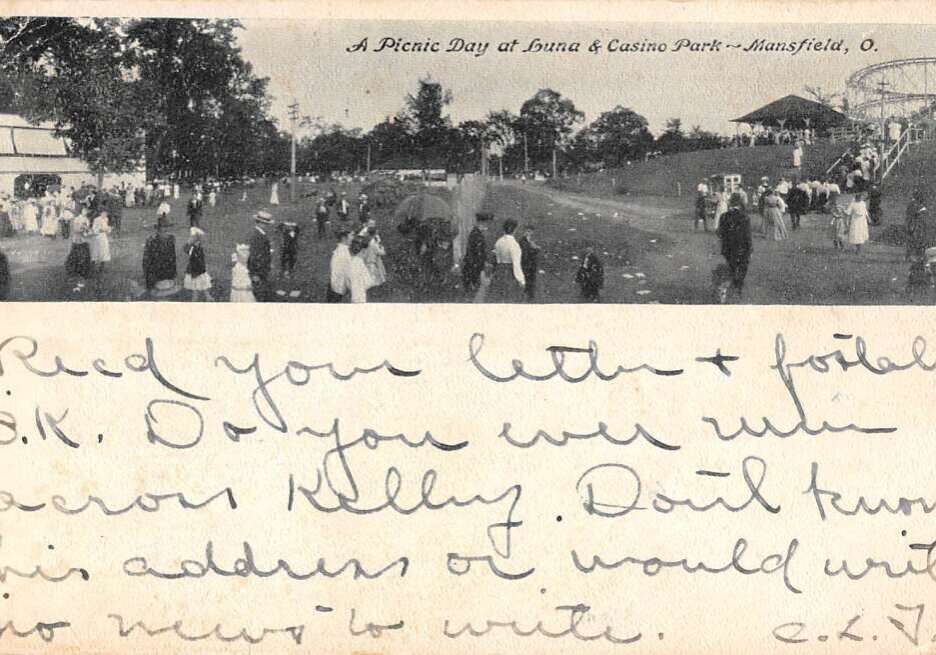 A Picnic Day at Luna & Casino Park ~ Mansfield, O.
Recd your letter & postal
O.K. Do you ever run
across Kelley. Don't know
his address or would write
no news to write. C.L.F.